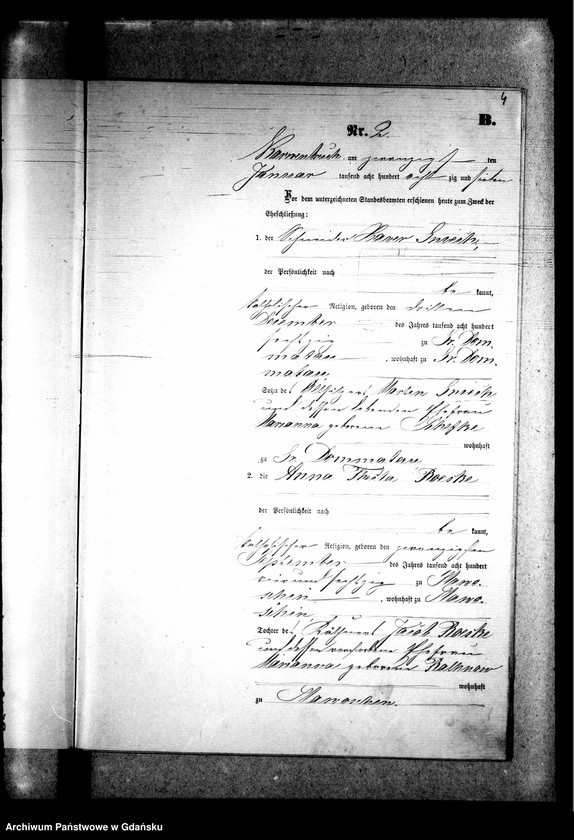 4
B.
Nr. 2.
am zwanzigsten
Januar tausend acht hundert achtzig und sieben
Vor dem unterzeichneten Standesbeamten erschienen heute zum Zweck der
Eheschließung:
1. der Schneider
der Persönlichkeit nach
be kannt,
katholischer Religion, geboren den dritten
December des Jahres tausend acht hundert
sechzig zu Gr. Dom-
matau, wohnhaft zu Gr. Dom-
matau
Sohn des Altsitzers
und dessen lebenden Ehefrau
Marianna geborene
wohnhaft
zu Gr. Dommatau
2. die Anna Roeske
der Persönlichkeit nach
be kannt,
katholischer Religion, geboren den zwanzigsten
September des Jahres tausend acht hundert
vier und sechzig zu Slawo-
schin, wohnhaft zu Slawo-
schin,
Tochter des Jacob Roeske
und dessen verstorbene Ehefrau
Marianna geborene
wohnhaft
zu
Archiwum Państwowe w Gdańsku